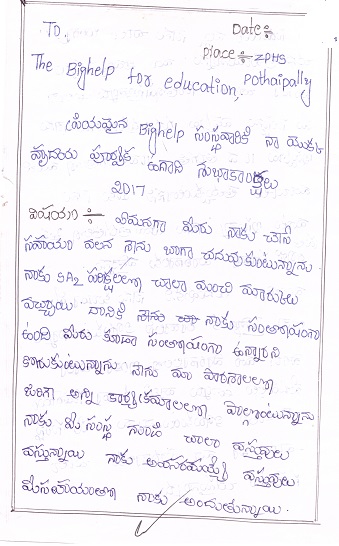 To,
Date:-
Place:- ZPHS
Pothaipally
The Bighelp for education,
ప్రియమైన Bighelp సంస్థవారికి నా యొక్క
హృదయ పూర్వక ఉగాది శుభాకాంక్షలు
2017
విషయం :- ఏమనగా మీరు నాకు చేసే
సహాయం వలన నేను బాగా చదువుకుంటున్నాను
నాకు SA2 పరిక్షలలో చాలా మంచి మార్కులు
వచ్చాయి దానికి నేను నాకు సంతోషంగా
ఉంది మీరు కూడా సంతోషంగా ఉన్నారని
కోరుకుంటున్నాను నేను మా పాఠశాలలో
జరిగే అన్ని కార్యక్రమాలలో పాల్గొంటున్నాను
నాకు మీ సంస్థ నుండి చాలా వస్తువులు
వస్తున్నాయి నాకు అవసరమయ్యే వస్తువులు
మీసహాయంతో నాకు అందుతున్నాయి.